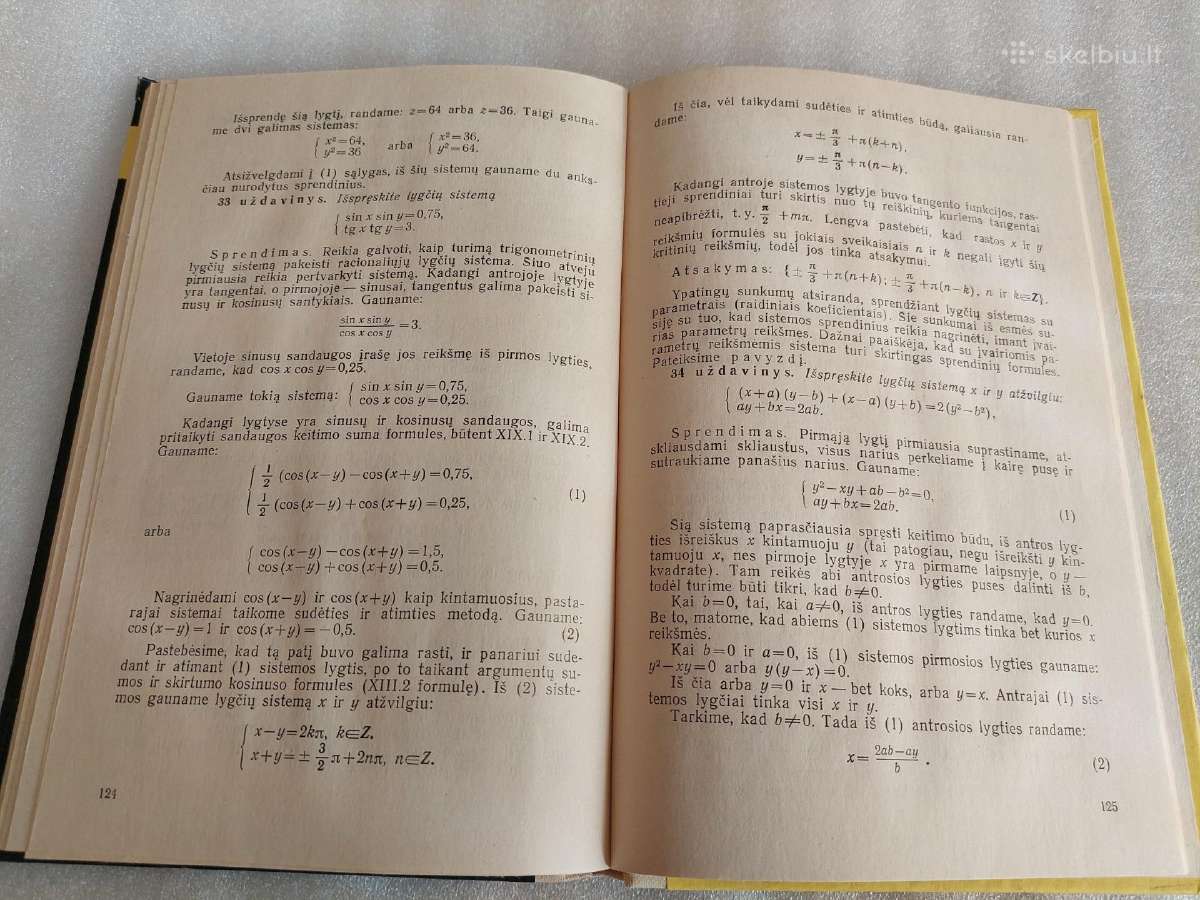 skelbiu.lt
Išsprendę šią lygtį, randame: z=64 arba z=36. Taigi gauna-
me dvi galimas sistemas:
{ x²=64, y²=36 arba { x²=36, y²=64.
Atsižvelgdami į (1) sąlygas, iš šių sistemų gauname du anks-
čiau nurodytus sprendinius.
33 uždavinys. Išspręskite lygčių sistemą
{ sin x sin y=0,75,
tg x tg y=3.
Sprendimas. Reikia galvoti, kaip turimą trigonometrinių
lygčių sistemą pakeisti racionaliųjų lygčių sistema. Šiuo atveju
pirmiausia reikia pertvarkyti sistemą. Kadangi antrojoje lygtyje
yra tangentai, o pirmojoje — sinusai, tangentus galima pakeisti si-
nusų ir kosinusų santykiais. Gauname:
sin x sin y / cos x cos y =3.
Vietoje sinusų sandaugos įrašę jos reikšmę iš pirmos lygties,
randame, kad cos x cos y=0,25.
Gauname tokią sistemą: { sin x sin y=0,75,
cos x cos y=0,25.
Kadangi lygtyse yra sinusų ir kosinusų sandaugos, galima
pritaikyti sandaugos keitimo suma formules, būtent XIX.1 ir XIX.2.
Gauname:
{ 1/2 (cos(x−y)−cos(x+y)=0,75,
1/2 (cos(x−y)+cos(x+y)=0,25, (1)
arba
{ cos(x−y)−cos(x+y)=1,5,
cos(x−y)+cos(x+y)=0,5.
Nagrinėdami cos(x−y) ir cos(x+y) kaip kintamuosius, pasta-
rajai sistemai taikome sudėties ir atimties metodą. Gauname:
cos(x−y)=1 ir cos(x+y)=−0,5. (2)
Pastebėsime, kad tą patį buvo galima rasti, ir panariui sude-
dant ir atimant (1) sistemos lygtis, po to taikant argumentų su-
mos ir skirtumo kosinuso formules (XIII.2 formulę). Iš (2) siste-
mos gauname lygčių sistemą x ir y atžvilgiu:
{ x−y=2kπ, k∈Z.
x+y=± 3/2 π+2nπ, n∈Z.
124
Iš čia, vėl taikydami sudėties ir atimties būdą, galiausia ran-
dame:
x=± π/3 +π(k+n),
y=± π/3 +π(n−k).
Kadangi antroje sistemos lygtyje buvo tangento funkcijos, ras-
tieji sprendiniai turi skirtis nuo tų reiškinių, kuriems tangentai
neapibrėžti, t. y. π/2 +mπ. Lengva pastebėti, kad rastos x ir y
reikšmių formulės su jokiais sveikaisiais n ir k negali įgyti šių
kritinių reikšmių, todėl jos tinka atsakymui.
Atsakymas: {± π/3 +π(n+k); ± π/3 +π(n−k), n ir k∈Z}.
Ypatingų sunkumų atsiranda, sprendžiant lygčių sistemas su
parametrais (raidiniais koeficientais). Šie sunkumai iš esmės su-
siję su tuo, kad sistemos sprendinius reikia nagrinėti, imant įvai-
rias parametrų reikšmes. Dažnai paaiškėja, kad su įvairiomis pa-
rametrų reikšmėmis sistema turi skirtingas sprendinių formules.
Pateiksime pavyzdį.
34 uždavinys. Išspręskite lygčių sistemą x ir y atžvilgiu:
{ (x+a)(y−b)+(x−a)(y+b)=2(y²−b²),
ay+bx=2ab.
Sprendimas. Pirmąją lygtį pirmiausia suprastiname, at-
skliausdami skliaustus, visus narius perkeliame į kairę pusę ir
sutraukiame panašius narius. Gauname:
{ y²−xy+ab−b²=0,
ay+bx=2ab. (1)
Šią sistemą paprasčiausia spręsti keitimo būdu, iš antros lyg-
ties išreiškus x kintamuoju y (tai patogiau, negu išreikšti y kin-
tamuoju x, nes pirmoje lygtyje x yra pirmame laipsnyje, o y —
kvadrate). Tam reikės abi antrosios lygties puses dalinti iš b,
todėl turime būti tikri, kad b≠0.
Kai b=0, tai, kai a≠0, iš antros lygties randame, kad y=0.
Be to, matome, kad abiems (1) sistemos lygtims tinka bet kurios x
reikšmės.
Kai b=0 ir a=0, iš (1) sistemos pirmosios lygties gauname:
y²−xy=0 arba y(y−x)=0.
Iš čia arba y=0 ir x — bet koks, arba y=x. Antrajai (1) sis-
temos lygčiai tinka visi x ir y.
Tarkime, kad b≠0. Tada iš (1) antrosios lygties randame:
x= 2ab−ay / b . (2)
125